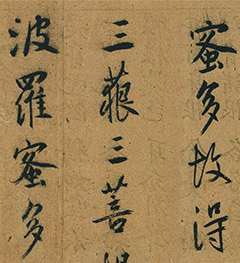 蜜多故得
三藐三菩
波羅蜜多